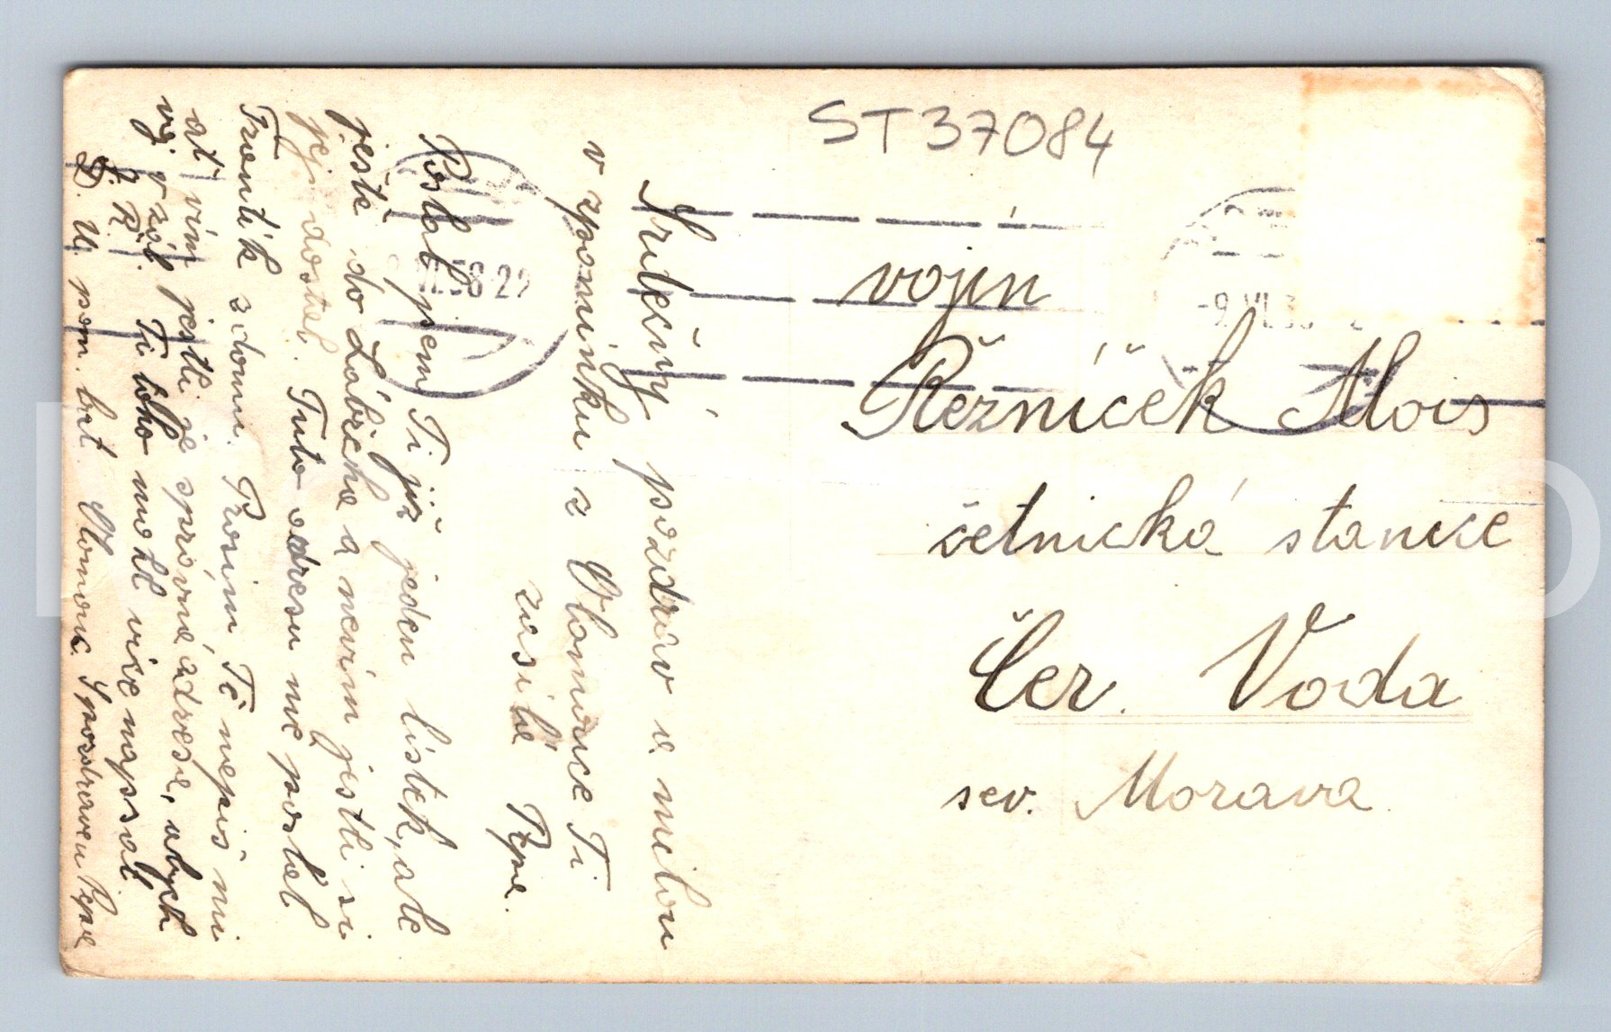 ST37084
Srdečný pozdrav a milou
vzpomínku z Olomouce Ti
zasílá Pepa.
Poslal jsem Ti již jeden lístek, ale
ještě do Lábrcha a nevím jestli si
jej dostal. Tuto adresu mě poslal
Frantík z domu. Prosím Tě napiš mi
ať vím jestli je správná adresa, abych
Ti toho mohl více napsat
pom. brt. Olomouc. S pozdravem Pepa
vojín
Řezníček Alois
četnická stanice
Čer. Voda
sev. Morava